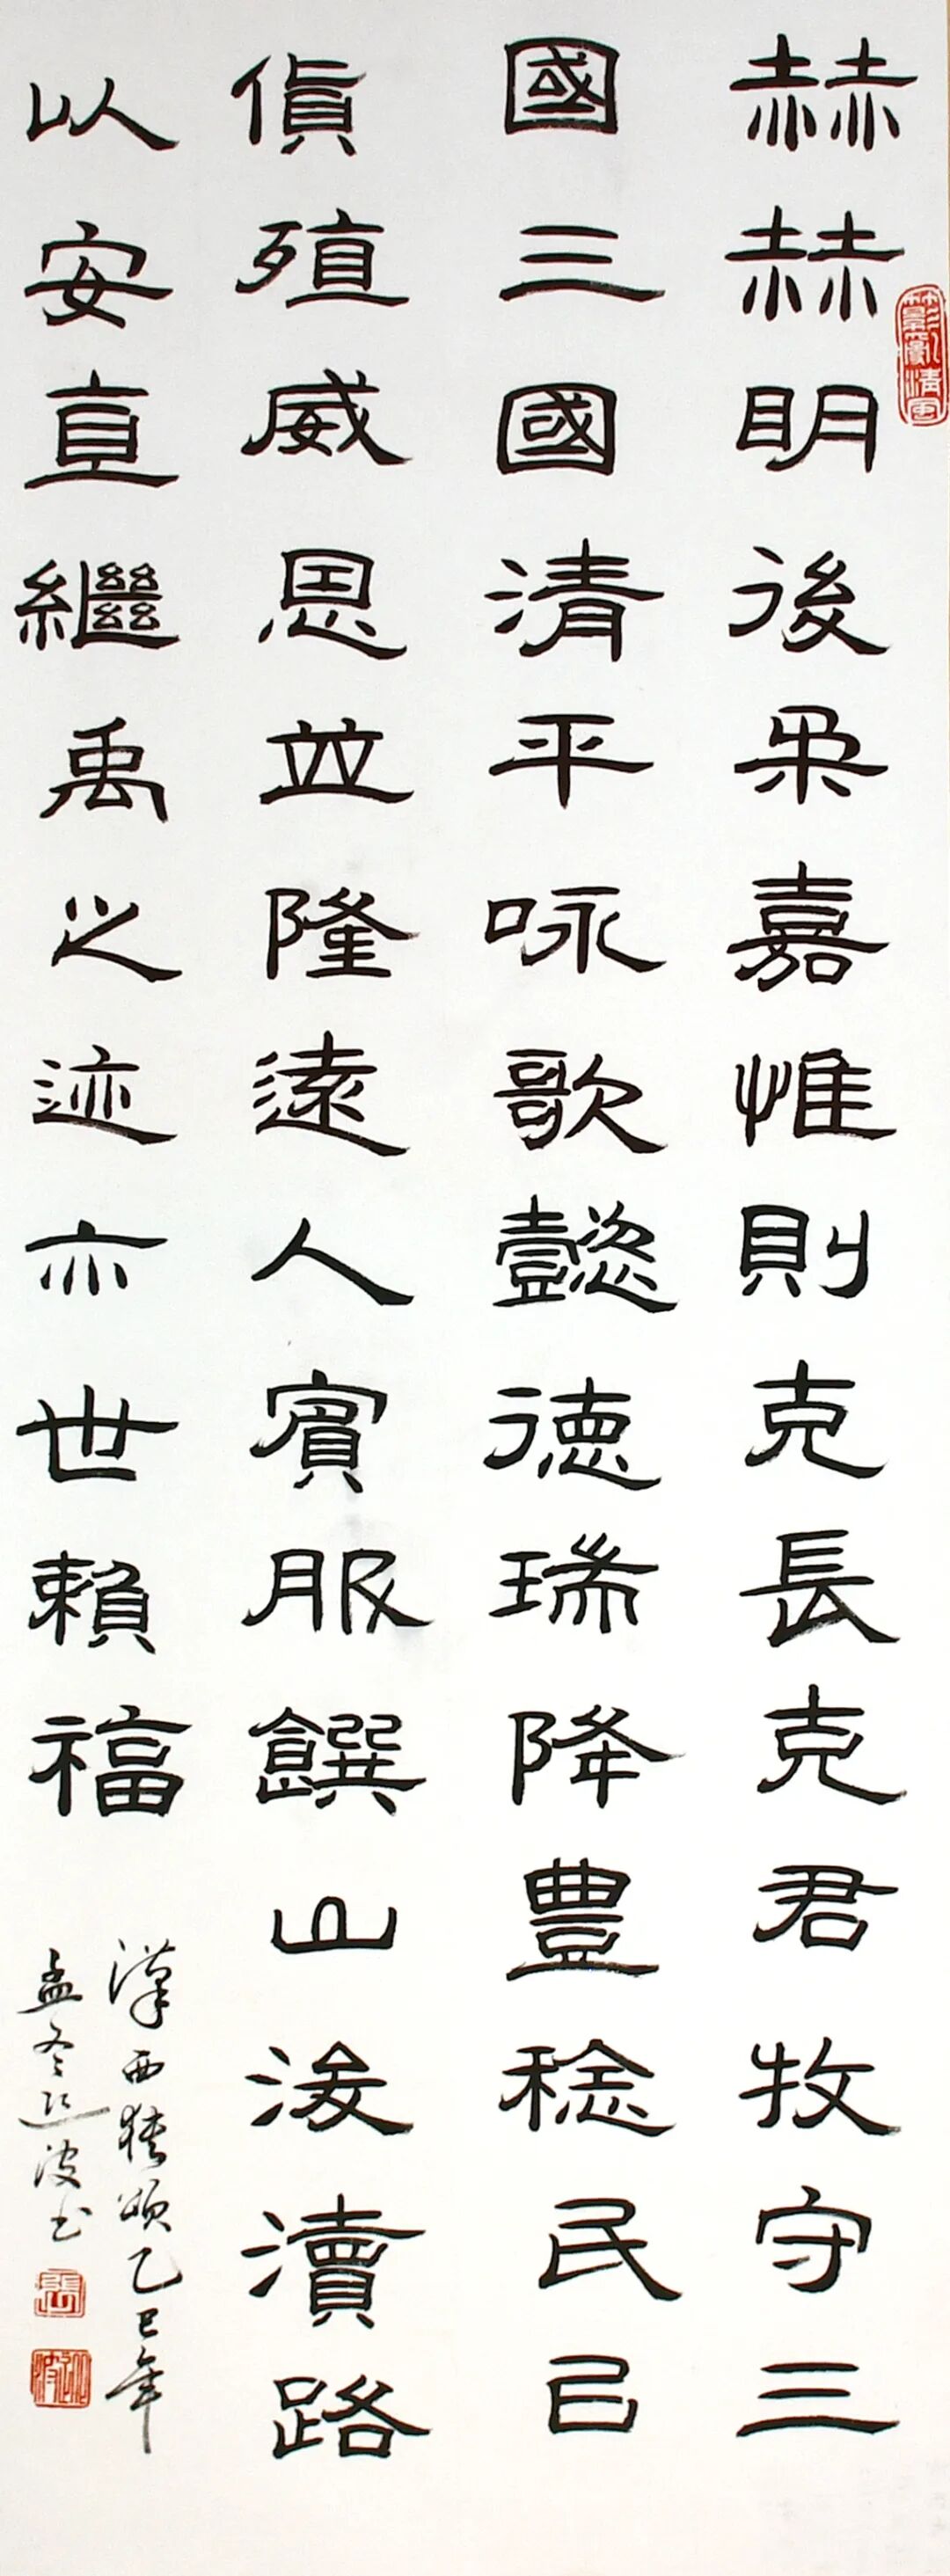 赫赫明後柔嘉惟則克長克君牧守三
國三國清平咏歌懿德瑞降豊稔民㠯
貨殖威恩並隆遠人賓服饌山浚瀆路
以安直繼禹之迹亦世賴福
漢西狹頌乙巳年
孟冬波书